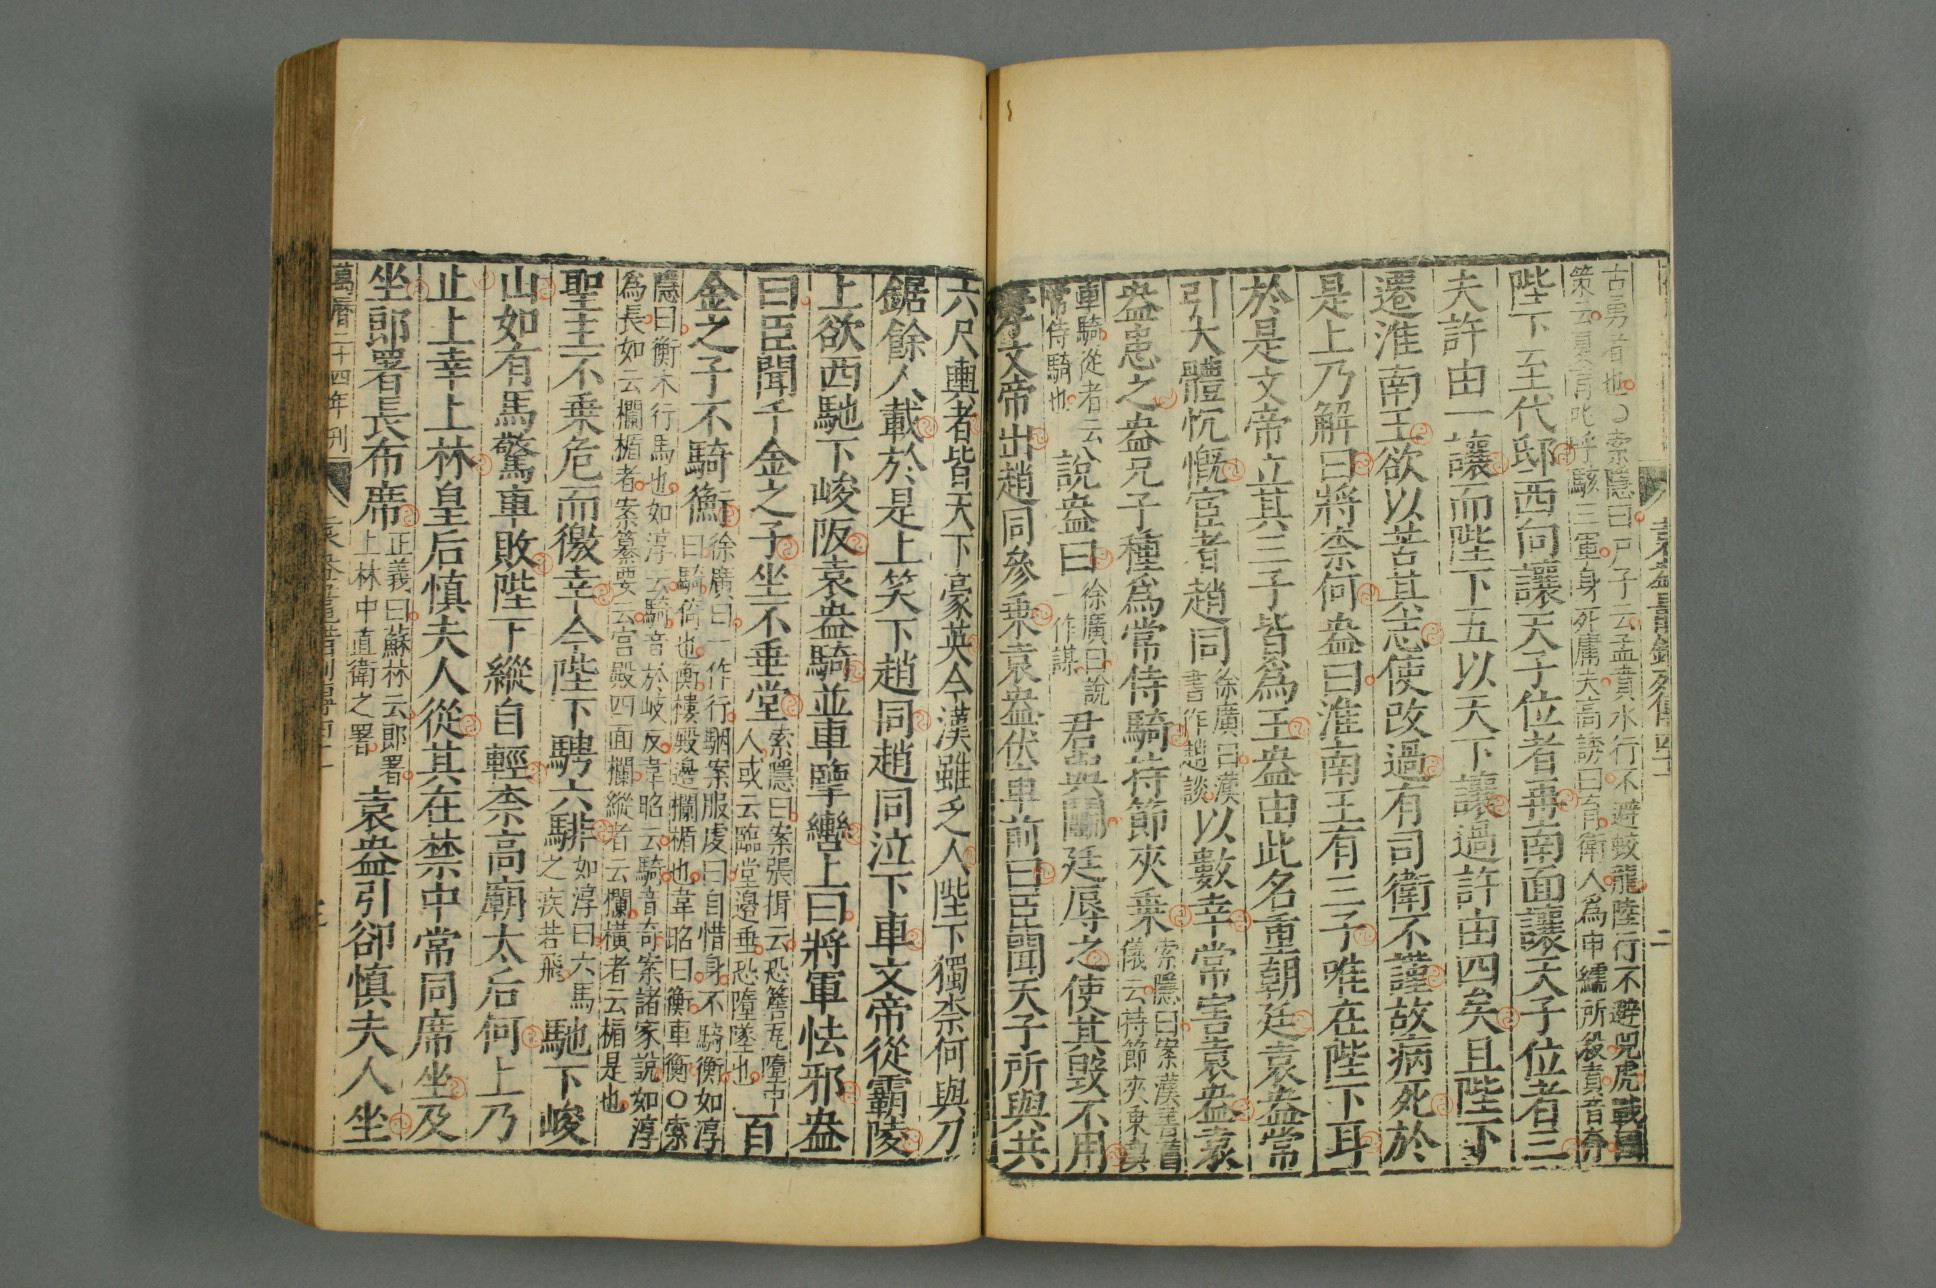 袁盎晁錯列傳四十一 二
古勇者也○索隱曰尸子云孟賁水行不避蛟龍陸行不避兕虎戰國
策云夏育叱呼駭三軍身死庸夫高誘曰育衛人爲申繻所殺賁音奔
陛下至代邸西向讓天子位者再南面讓天子位者三
夫許由一讓而陛下五以天下讓過許由四矣且陛下
遷淮南王欲以苦其志使改過有司衛不謹故病死於
是上乃解曰將柰何盎曰淮南王有三子唯在陛下耳
於是文帝立其三子皆爲王盎由此名重朝廷袁盎常
引大體忼慨宦者趙同徐廣曰漢書作趙談以數幸常害袁盎袁
盎患之盎兄子種爲常侍騎持節夾乗索隱曰案漢書舊儀云持節夾乗輿
車騎從者云常侍騎也說盎曰徐廣曰說一作謀君與鬭廷辱之使其毀不用
孝文帝出趙同參乗袁盎伏車前曰臣聞天子所與共
六尺輿者皆天下豪英今漢雖乏人陛下獨柰何與刀
鋸餘人載於是上笑下趙同趙同泣下車文帝從霸陵
上欲西馳下峻阪袁盎騎並車擥轡上曰將軍怯邪盎
曰臣聞千金之子坐不垂堂索隱曰案張揖云恐簷瓦墮中人或云臨堂邊垂恐墮墜也百
金之子不騎衡徐廣曰一作行駰案服虔曰自惜身不騎衡如淳曰騎倚也衡樓殿邊欄楯也韋昭曰衡車衡○索
隱曰衡木行馬也如淳云騎音於岐反韋昭云騎音奇案諸家說如淳
爲長如云欄楯者案纂要云宮殿四面欄縱者云欄橫者云楯是也
聖主不乗危而徼幸今陛下騁六騑如淳曰六馬之疾若飛馳下峻
山如有馬驚車敗陛下縱自輕柰高廟太后何上乃
止上幸上林皇后慎夫人從其在禁中常同席坐及
坐郎署長布席正義曰蘇林云郎署上林中直衛之署袁盎引卻慎夫人坐
萬曆二十四年刊 袁盎晁錯列傳四十一 三